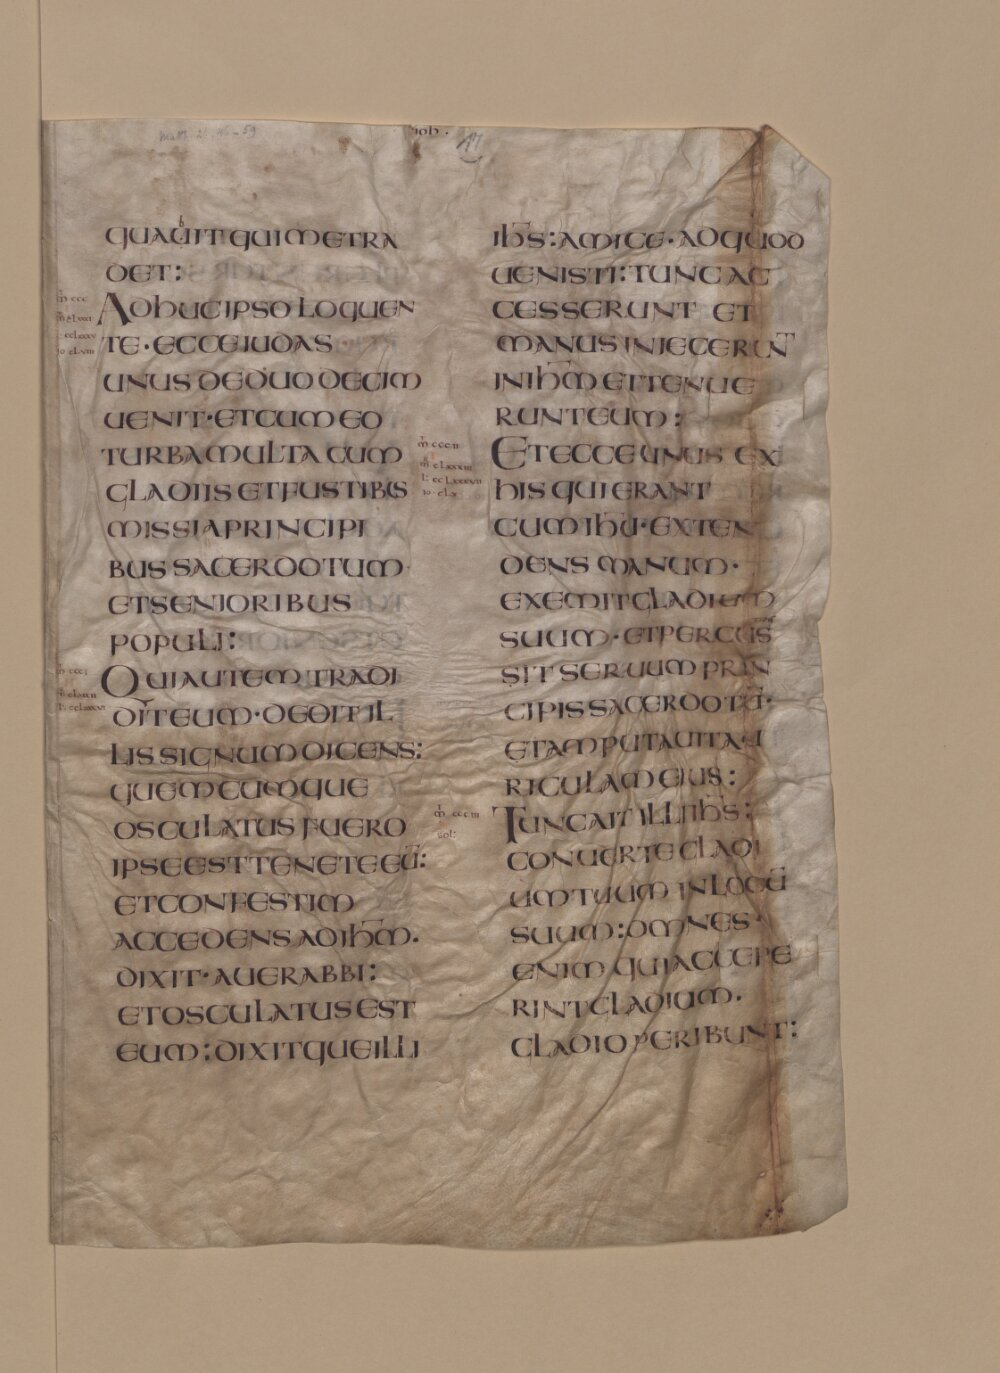 Matt. 26, 46-59
ioh.
quauit qui me tra
det:
Adhuc ipso loquen
te· ecce iudas
unus de duodecim
uenit· et cum eo
turba multa cum
gladiis et fustibus
missi a principi
bus sacerdotum
et senioribus
populi:
Qui autem tradi
dit eum· dedit il
lis signum dicens:
quemcumque
osculatus fuero
ipse est tenete eū:
et confestim
accedens ad ihm̄.
dixit· aue rabbi:
et osculatus est
eum: dixitque illi
ih̄s: amice· ad quod
uenisti: tunc ac
cesserunt et
manus iniecerūt
in ihm̄ et tenue
runt eum:
Et ecce unus ex
his qui erant
cum ihū· exten
dens manum·
exemit gladium
suum· et percus
sit seruum prin
cipis sacerdotū·
et amputauit au
riculam eius:
Tunc ait illi ih̄s:
conuerte gladi
um tuum in locū
suum: omnes
enim qui accepe
rint gladium.
gladio peribunt: